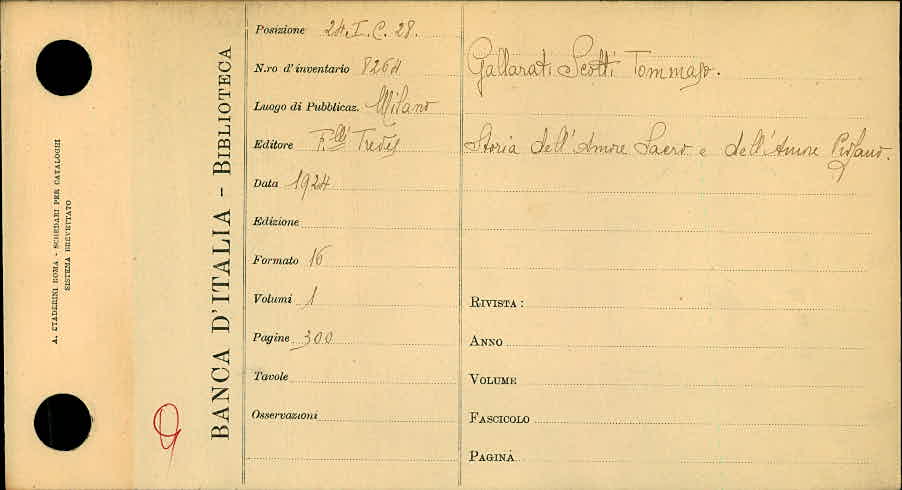 A. STADERINI ROMA - SCHEDARI PER CATALOGHI
SISTEMA BREVETTATO
BANCA D'ITALIA - BIBLIOTECA
Posizione 24.I.C.28.
N.ro d'inventario 8264
Luogo di Pubblicaz. Milano
Editore F.lli Treves
Data 1924
Edizione
Formato 16
Volumi 1
Pagine 300
Tavole
Osservazioni
Gallarati Scotti Tommaso.
Storia dell'Amore Sacro e dell'Amore Profano.
RIVISTA :
ANNO
VOLUME
FASCICOLO
PAGINA